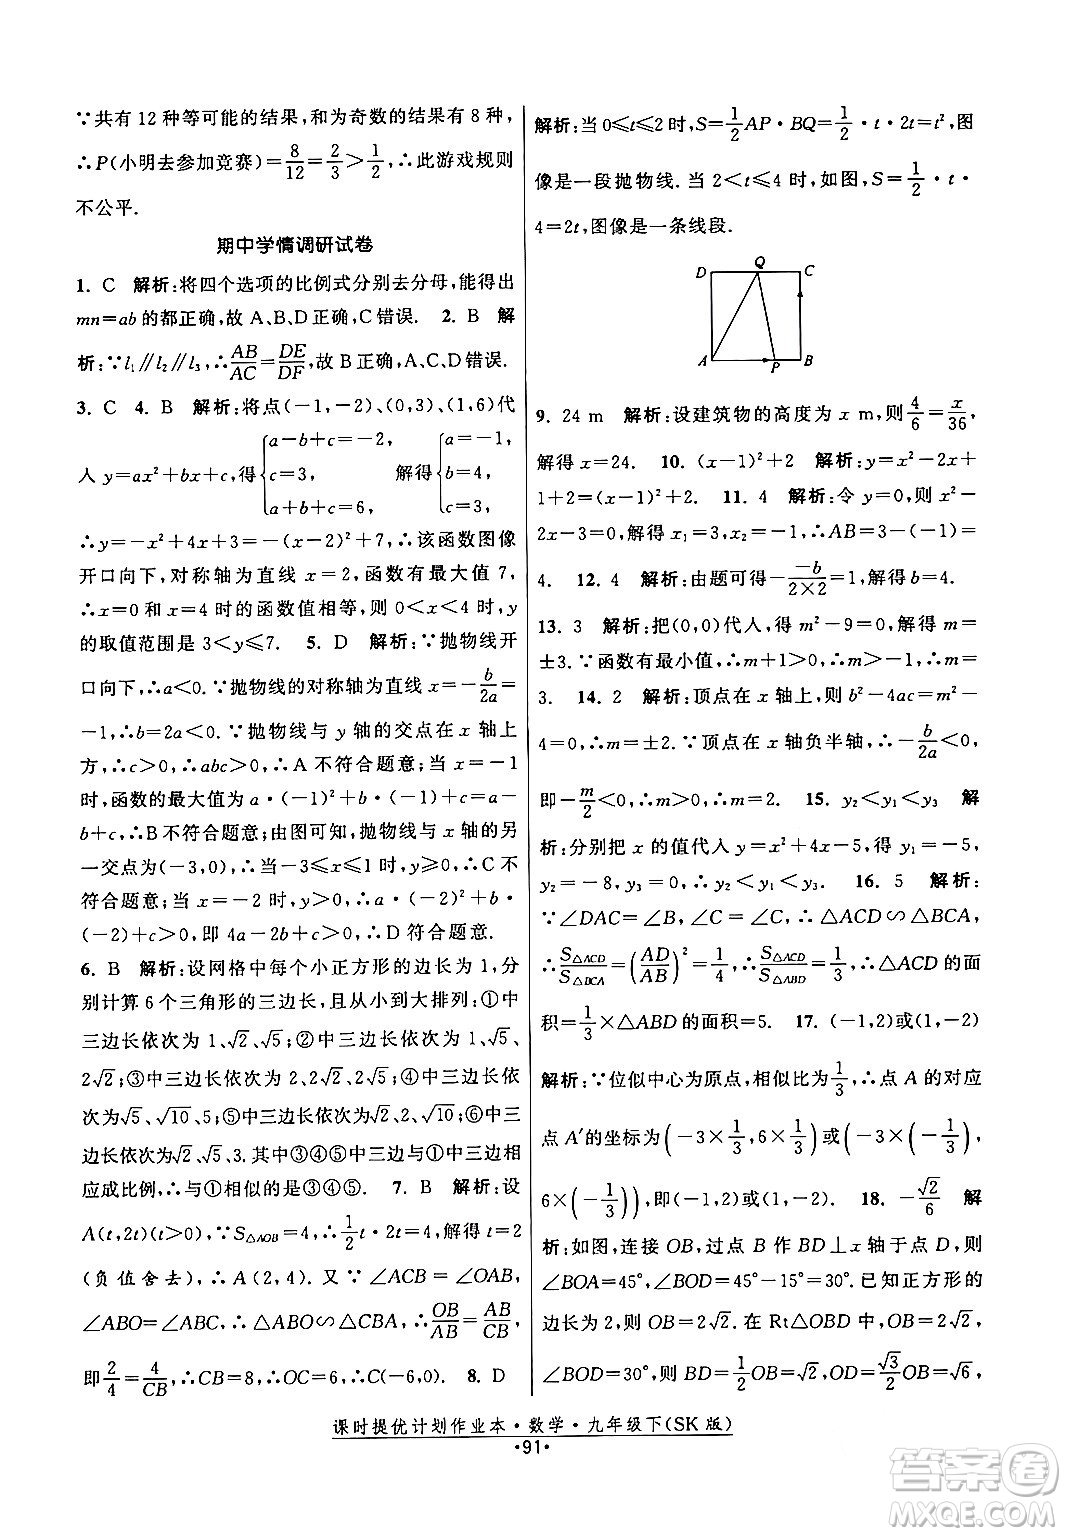 ∵共有 12 种等可能的结果,和为奇数的结果有 8 种,
∴P(小明去参加竞赛)=8/12=2/3>1/2,∴此游戏规则
不公平.
期中学情调研试卷
1. C 解析:将四个选项的比例式分别去分母,能得出
mn=ab 的都正确,故 A、B、D 正确,C 错误. 2. B 解
析:∵l₁∥l₂∥l₃,∴AB/AC=DE/DF,故 B 正确,A、C、D 错误.
3. C 4. B 解析:将点(-1,-2)、(0,3)、(1,6)代
人 y=ax²+bx+c,得{a-b+c=-2, c=3, a+b+c=6, 解得{a=-1, b=4, c=3.
∴y=-x²+4x+3=-(x-2)²+7,∴该函数图像
开口向下,对称轴为直线 x=2,函数有最大值 7,
∴x=0 和 x=4 时的函数值相等,则 0<x<4 时,y
的取值范围是 3<y≤7. 5. D 解析:∵抛物线开
口向下,∴a<0. ∵抛物线的对称轴为直线 x=-b/2a=
-1,∴b=2a<0. ∵抛物线与 y 轴的交点在 x 轴上
方,∴c>0,∴abc>0,∴A 不符合题意;当 x=-1
时,函数的最大值为 a·(-1)²+b·(-1)+c=a-
b+c,∴B不符合题意;由图可知,抛物线与 x 轴的另
一交点为(-3,0),∴当-3≤x≤1 时,y≥0,∴C 不
符合题意;当 x=-2 时,y>0,∴a·(-2)²+b·
(-2)+c>0,即 4a-2b+c>0,∴D 符合题意.
6. B 解析:设网格中每个小正方形的边长为 1,分
别计算 6 个三角形的三边长,并从小到大排列:①中
三边长依次为 1、√2、√5;②中三边长依次为 1、√5、
2√2;③中三边长依次为 2、2√2、2√5;④中三边长依
次为√5、√10、5;⑤中三边长依次为√2、2、√10;⑥中三
边长依次为√2、√5、3.由于③④⑤中三边与①中三边相
应成比例,∴与①相似的是③④⑤. 7. B 解析:设
A(t,2t)(t>0),∵S△AOB=4,∴1/2t·2t=4,解得 t=2
(负值舍去),∴A(2,4). 又∵∠ACB=∠OAB,
∠ABO=∠CBA,∴△ABO∽△CBA,∴OB/AB=AB/CB,
即2/4=4/CB,∴CB=8,∴C(-6,0). 8. D
解析:当 0≤t≤2 时,S=1/2AP·BQ=1/2·t·2t=t²,图
像是一段抛物线.当 2<t≤4 时,如图,S=1/2·t·
4=2t,图像是一条线段.
D Q C
A P B
9. 24 m 解析:设建筑物的高度为 x m,则4/6=x/36,
解得 x=24. 10. (x-1)²+2 解析:y=x²-2x+
1+2=(x-1)²+2. 11. 4 解析:令 y=0,则 x²-
2x-3=0,解得 x₁=3,x₂=-1,∴AB=3-(-1)=
4. 12. 4 解析:由题可得-(-b)/(2×2)=1,解得b=4.
13. 3 解析:把(0,0)代人,得 m²-9=0,解得 m=
±3. ∵函数有最小值,∴m+1>0,∴m>-1,∴m=
3. 14. 2 解析:顶点在 x 轴上,则 b²-4ac=m²-
4=0,∴m=±2. ∵顶点在 x 轴负半轴,∴-b/2a<0,
即-m/2<0,∴m>0,∴m=2. 15. y₂<y₁<y₃ 解
析:分别把 x 的值代人 y=x²+4x-5,得 y₁=-5,
y₂=-8,y₃=0,∴y₂<y₁<y₃. 16. 5 解析:
∵∠DAC=∠B,∠C=∠C,∴△ACD∽△BCA,
∴S△ACD/S△BCA=(AD/AB)²=1/4,∴S△ACD/S△ABD=1/3,∴△ACD 的面
积=1/3×△ABD 的面积=5. 17. (-1,2)或(1,-2)
解析:∵位似中心为原点,相似比为1/3,∴点 A 的对应
点 A′的坐标为(-3×1/3,6×1/3)或(-3×(-1/3),
6×(-1/3)),即(-1,2)或(1,-2). 18. -√2/6 解
析:如图,连接 OB,过点 B 作 BD⊥x 轴于点 D,则
∠BOA=45°,∠BOD=45°-15°=30°.已知正方形的
边长为 2,则 OB=2√2. 在 Rt△OBD 中,OB=2√2,
∠BOD=30°,则 BD=1/2OB=√2,OD=√3/2OB=√6,
课时提优计划作业本·数学·九年级下(SK 版)
·91·
答案圈
MXQE.COM